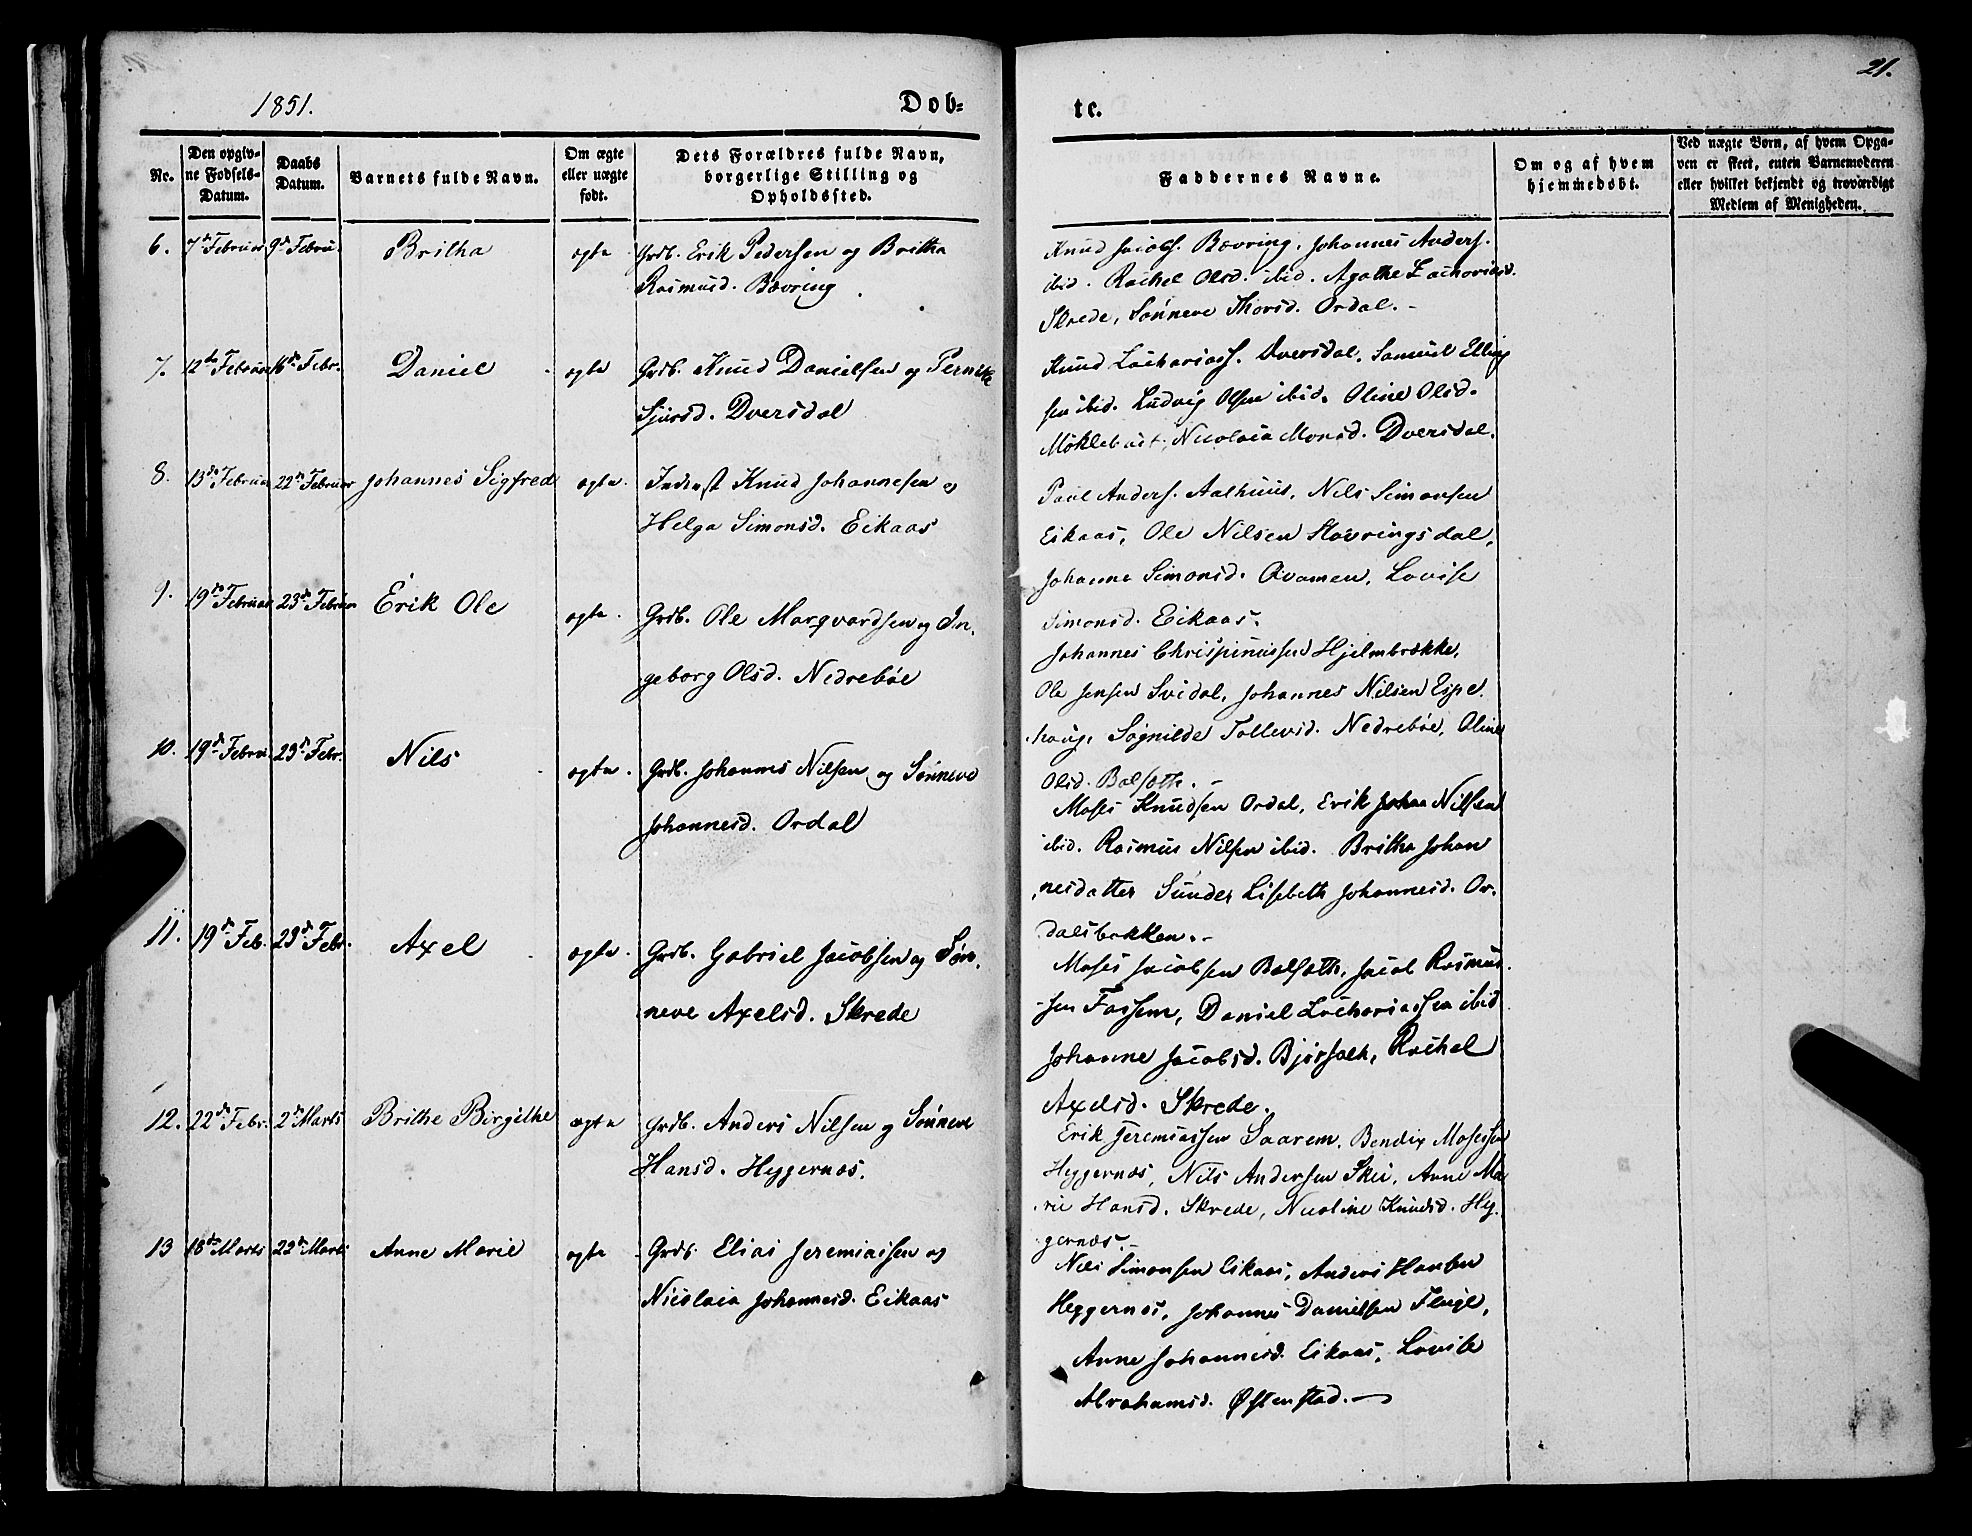 1851.
Dob=
te.
21.
No.
Den opgiv-
ne Fødsels-
Datum.
Daabs
Datum.
Barnets fulde Navn.
Om ægte
eller uægte
født.
Dets Forældres fulde Navn,
borgerlige Stilling og
Opholdssted.
Faddernes Navne.
Om og af hvem
hjemmedøbt.
Ved uægte Børn, af hvem Opga-
ven er skeet, enten Barnemoderen
eller hvilket bekjendt og troværdigt
Medlem af Menigheden.
6. 7de Februar 9de Febru. Britha ægte Grdb. Erik Pedersen og Britha
Rasmusd. Bævring
Knud Jacobs. Bævring, Johannes Anders.
ibid. Rachel Olsd. ibid. Agathe Zachariasd.
Skrede, Sønneve Thorsd. Ordal.-
7. 12te Februar 16de Febr. Daniel ægte Grdb. Knud Danielsen og Pernele
Sjursd. Dversdal
Knud Zachariass. Dversdal, Samuel Elling
sen ibid. Ludvig Olsen ibid. Oline Olsd.
Møklebust. Nicolaia Monsd. Dversdal.
8. 13de Februar 22de Februar Johannes Sigfred ægte Inderst Knud Johannesen og
Helga Simonsd. Eikaas
Paul Anders. Aalhuus, Nils Simonsen
Eikaas, Ole Nilsen Støvringsdal,
Johanne Simonsd. Qvamen, Lovise
Simonsd. Eikaas.
9. 19de Februar 23de Februar Erik Ole ægte Grdb. Ole Marqvardsen og In-
geborg Olsd. Nedrebøe
Johannes Chrispinussen Hjelmbrække,
Ole Jensen Svidal, Johannes Nilsen Espe
haug, Sognilde Tollevsd. Nedrebøe, Oline
Olsd. Bolsæth.-
10. 19de Februar 23de Febr. Nils ægte Grdb. Johannes Nilsen og Sønneve
Johannesd. Ordal
Moses Knudsen Ordal, Erik Nilsen
ibid. Rasmus Nilsen ibid. Britha Johan
nesdatter Sunder Lisebeth Johannesd. Or-
dalsbakken.-
11. 19de Feb. 23de Febr. Axel ægte Grdb. Gabriel Jacobsen og Søn-
neve Axelsd. Skrede
Moses Jacobsen Bolsæth, Jacob Rasmus-
sen Fossem, Daniel Zachariassen ibid
Johanne Jacobsd. Bjørsæth, Rachel
Axelsd. Skrede.
12. 22de Febr. 2de Marts Brithe Birgithe ægte Grdb. Anders Nilsen og Sønneve
Hansd. Heggernæs.
Erik Jeremiassen Saarem, Bendix Mosessen
Heggernæs, Nils Andersen Skei, Anne Ma
rie Hansd. Skrede, Nicoline Knudsd. Heg-
gernæs.-
13 18de Marts 22de Marts Anne Marie ægte Grdb. Elias Jeremiassen og
Nicolaia Johannesd. Eikaas
Nils Simonsen Eikaas, Anders Hansen
Heggernæs, Johannes Danielsen Fluge,
Anne Johannesd. Eikaas, Lovise
Abrahamsd. Østenstad.-